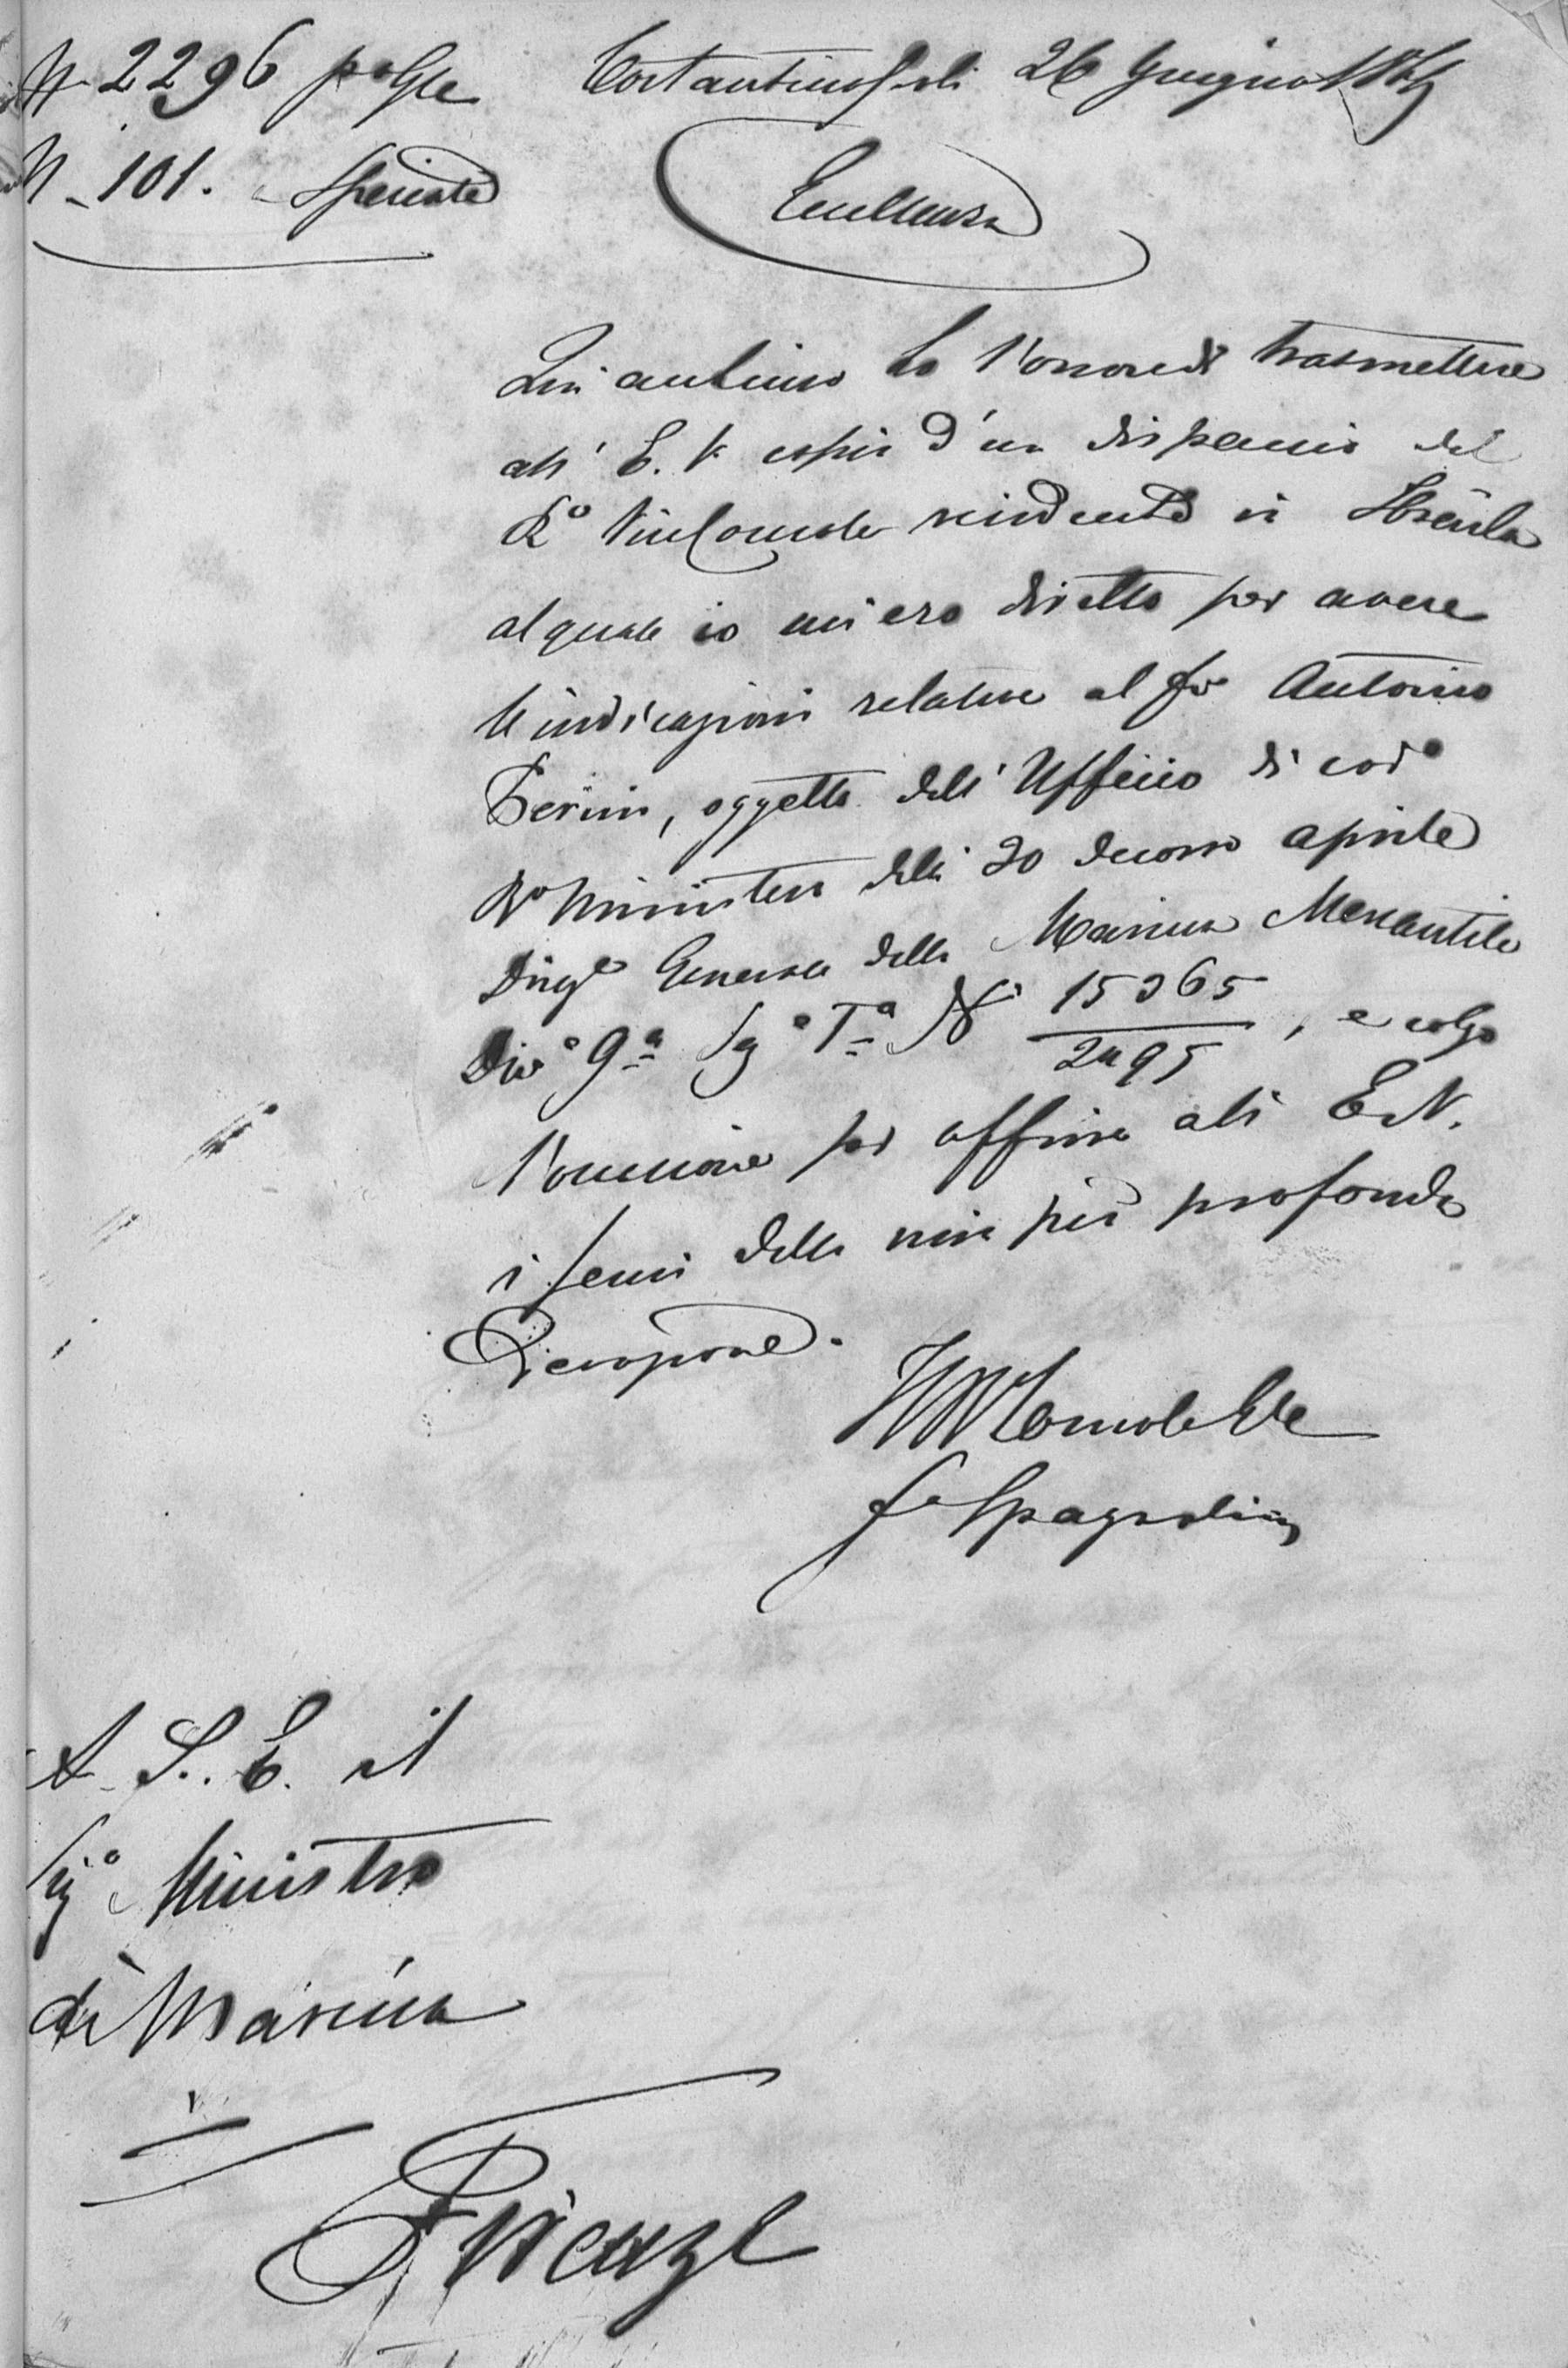 N. 2296 p.Gle
Costantinopoli 26 Giugno 1869
N. 101. Speciale
Eccellenza
Qui antimo ho l'onore di trasmettere
all' E. V. copia d'un dispaccio del
Ro ViceConsole residente in
al quale io mi ero diretto per avere
le indicazioni relative al fu Antonio
Perini, oggetto dell' Ufficio di cod°
R° Ministero delli 20 decorso aprile
Dirge Generale della Marina Mercantile
Div° 9a Sez° Ta N° 15365 / 2495, e colgo
l'occasione per offrire all' E. V.
i sensi della mia più profonda
Devozione.
Il R Console Gle
Spagnolini
A S. E. il
Sigr Ministro
di Marina
Firenze